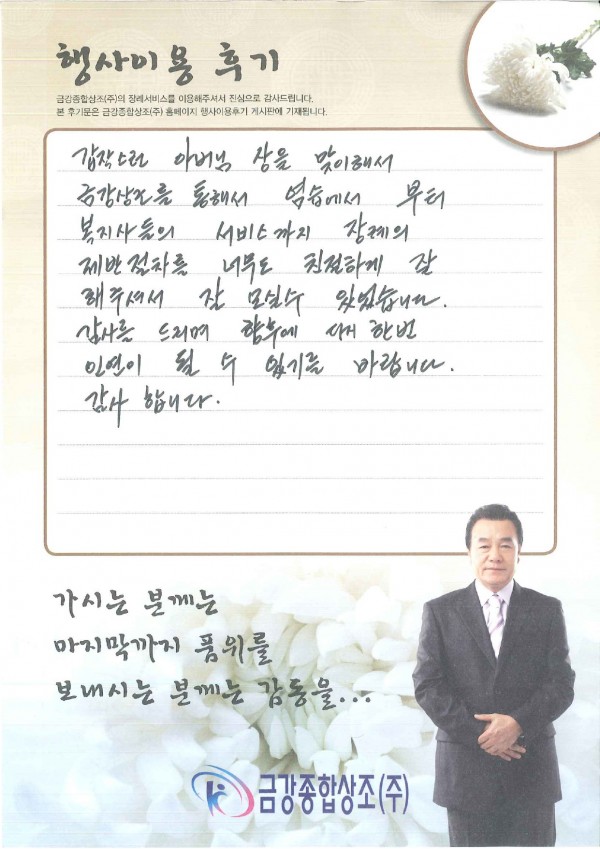 행사이용 후기
금강종합상조(주)의 장례서비스를 이용해주셔서 진심으로 감사드립니다.
본 후기문은 금강종합상조(주) 홈페이지 행사이용후기 게시판에 기재됩니다.
갑작스런 아버님 상을 맞이해서
금강상조를 통해서 염습에서 부터
복지사들의 서비스까지 장례의
제반절차를 너무도 친절하게 잘
해주셔서 잘 모실수 있었습니다.
감사를 드리며 향후에 다시 한번
인연이 될 수 있기를 바랍니다.
감사 합니다.
가시는 분께는
마지막까지 품위를
보내시는 분께는 감동을...
금강종합상조(주)